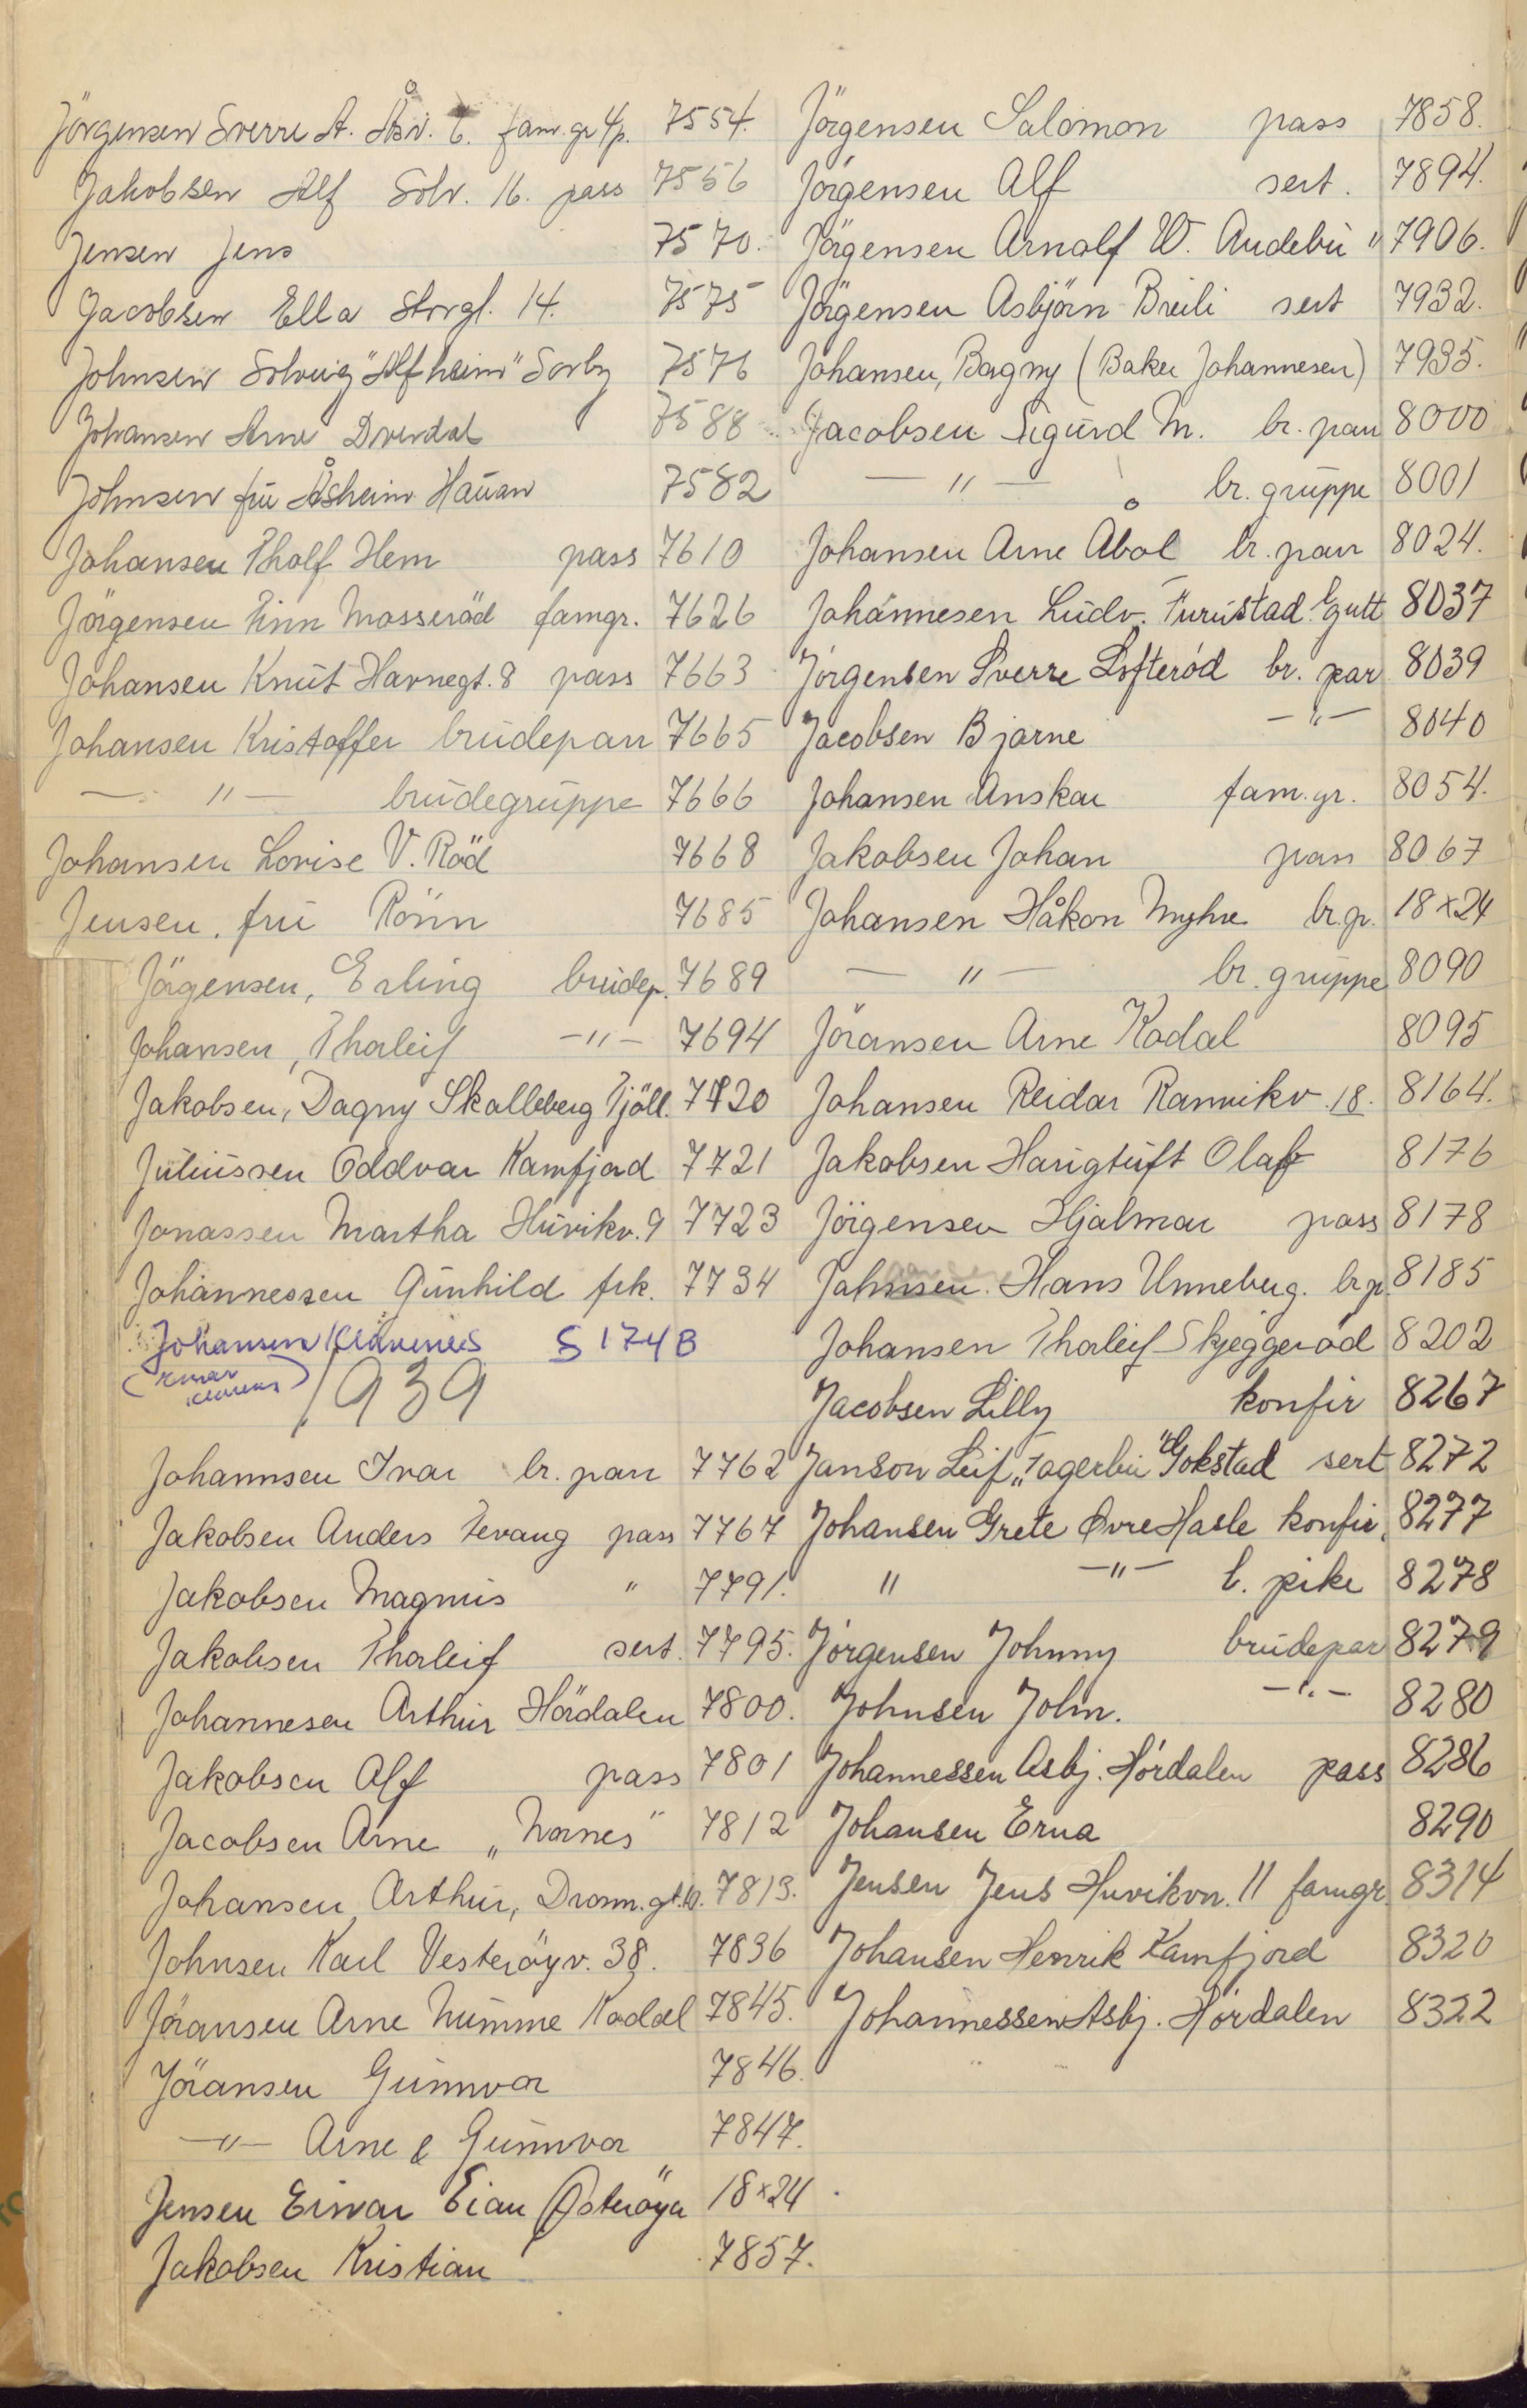 Jörgensen Sverre A. Åsv. 6. fam.gr 4p. 7554.
Jakobsen Alf Solv. 16. pass 7556
Jensen Jens 7570.
Jacobsen Ella Storgt. 14. 7575
Johnsen Solveig "Alfheim" Sörby 7576
Johansen Arne 7588
Johnsen fru Åsheim Hauan 7582
Johansen Tholf Hem pass 7610
Jörgensen Finn Mosseröd famgr. 7626
Johansen Knut Havnegt. 8 pass 7663
Johansen Kristoffer brudepar 7665
— " — brudegruppe 7666
Johansen Lovise V. Röd 7668
Jensen, fru Rönn 7685
Jörgensen, Erling brudep. 7689
Johansen, Thorleif —"— 7694
Jakobsen, Dagny Skalleberg Tjöll. 7720
Juliussen Oddvar Kamfjord 7721
Jonassen Martha Huvikv. 9 7723
Johannessen Gunhild frk. 7734
Johansen Klavenes S 174 B
1939
Johannsen Ivar br. par 7762
Jakobsen Anders Tevang pass 7767
Jakobsen Magnus " 7791.
Jakobsen Thorleif sert. 7795.
Johannesen Arthur Hördalen 7800.
Jakobsen Alf pass 7801
Jacobsen Arne „Nornes" 7812
Johansen Arthur, Dronn.gt. 7813.
Johnsen Karl Vesteröyv. 38. 7836
Jöransen Arne Numme Kodal 7845.
Jöransen Gunnvor 7846.
—"— Arne & Gunnvor 7847.
Jensen Einar Eian Österöya 18×24
Jakobsen Kristian 7857.
Jörgensen Salomon pass 7858.
Jörgensen Alf sert. 7894.
Jörgensen Arnolf W. Andebu " 7906.
Jörgensen Asbjörn Breili sert 7932.
Johansen, Bagny (Baker Johannesen) 7935.
Jacobsen Sigurd M. br. par 8000
— " — br. gruppe 8001
Johansen Arne Åbol br. par 8024.
Johannesen Ludv. Furustad. Gutt 8037
Jörgensen Sverre Lofteröd br. par 8039
Jacobsen Bjarne —"— 8040
Johansen Anskar fam.gr. 8054.
Jakobsen Johan par 8067
Johansen Håkon Myhre br.p. 18×24
— " — br. gruppe 8090
Jöransen Arne Kodal 8095
Johansen Reidar Ramvikv. 18. 8164.
Jakobsen Haugtuft Olaf 8176
Jörgensen Hjalmar pass 8178
Johnsen. Hans Unneberg. br.p. 8185
Johansen Thorleif Skjeggeröd 8202
Jacobsen Lilly konfir 8267
Janson Leif „Fagerbu" Gokstad sert 8272
Johansen Grete Øvre Hasle konfir. 8277
" —"— l. pike 8278
Jörgensen Johnny brudepar 8279
Johnsen John. —"— 8280
Johannessen Asbj. Hördalen pass 8286
Johansen Erna 8290
Jensen Jens Huvikvn. 11 famgr. 8314
Johansen Henrik Kamfjord 8320
Johannessen Asbj. Hördalen 8322